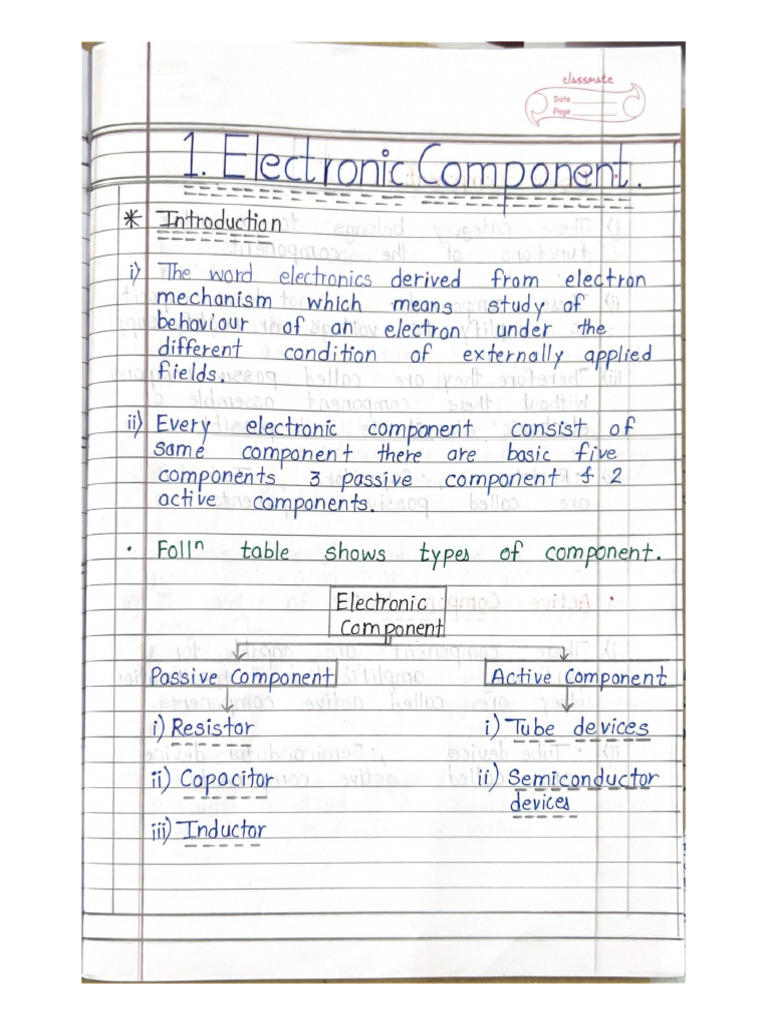 classmate
Date
Page
1. Electronic Component.
* Introduction
i) The word electronics derived from electron
mechanism which means study of
behaviour of an electron under the
different condition of externally applied
fields.
ii) Every electronic component consist of
some component there are basic five
components 3 passive component & 2
active components.
• Follⁿ table shows types of component.
Electronic
Component
Passive Component Active Component
i) Resistor i) Tube devices
ii) Capacitor ii) Semiconductor
devices
iii) Inductor